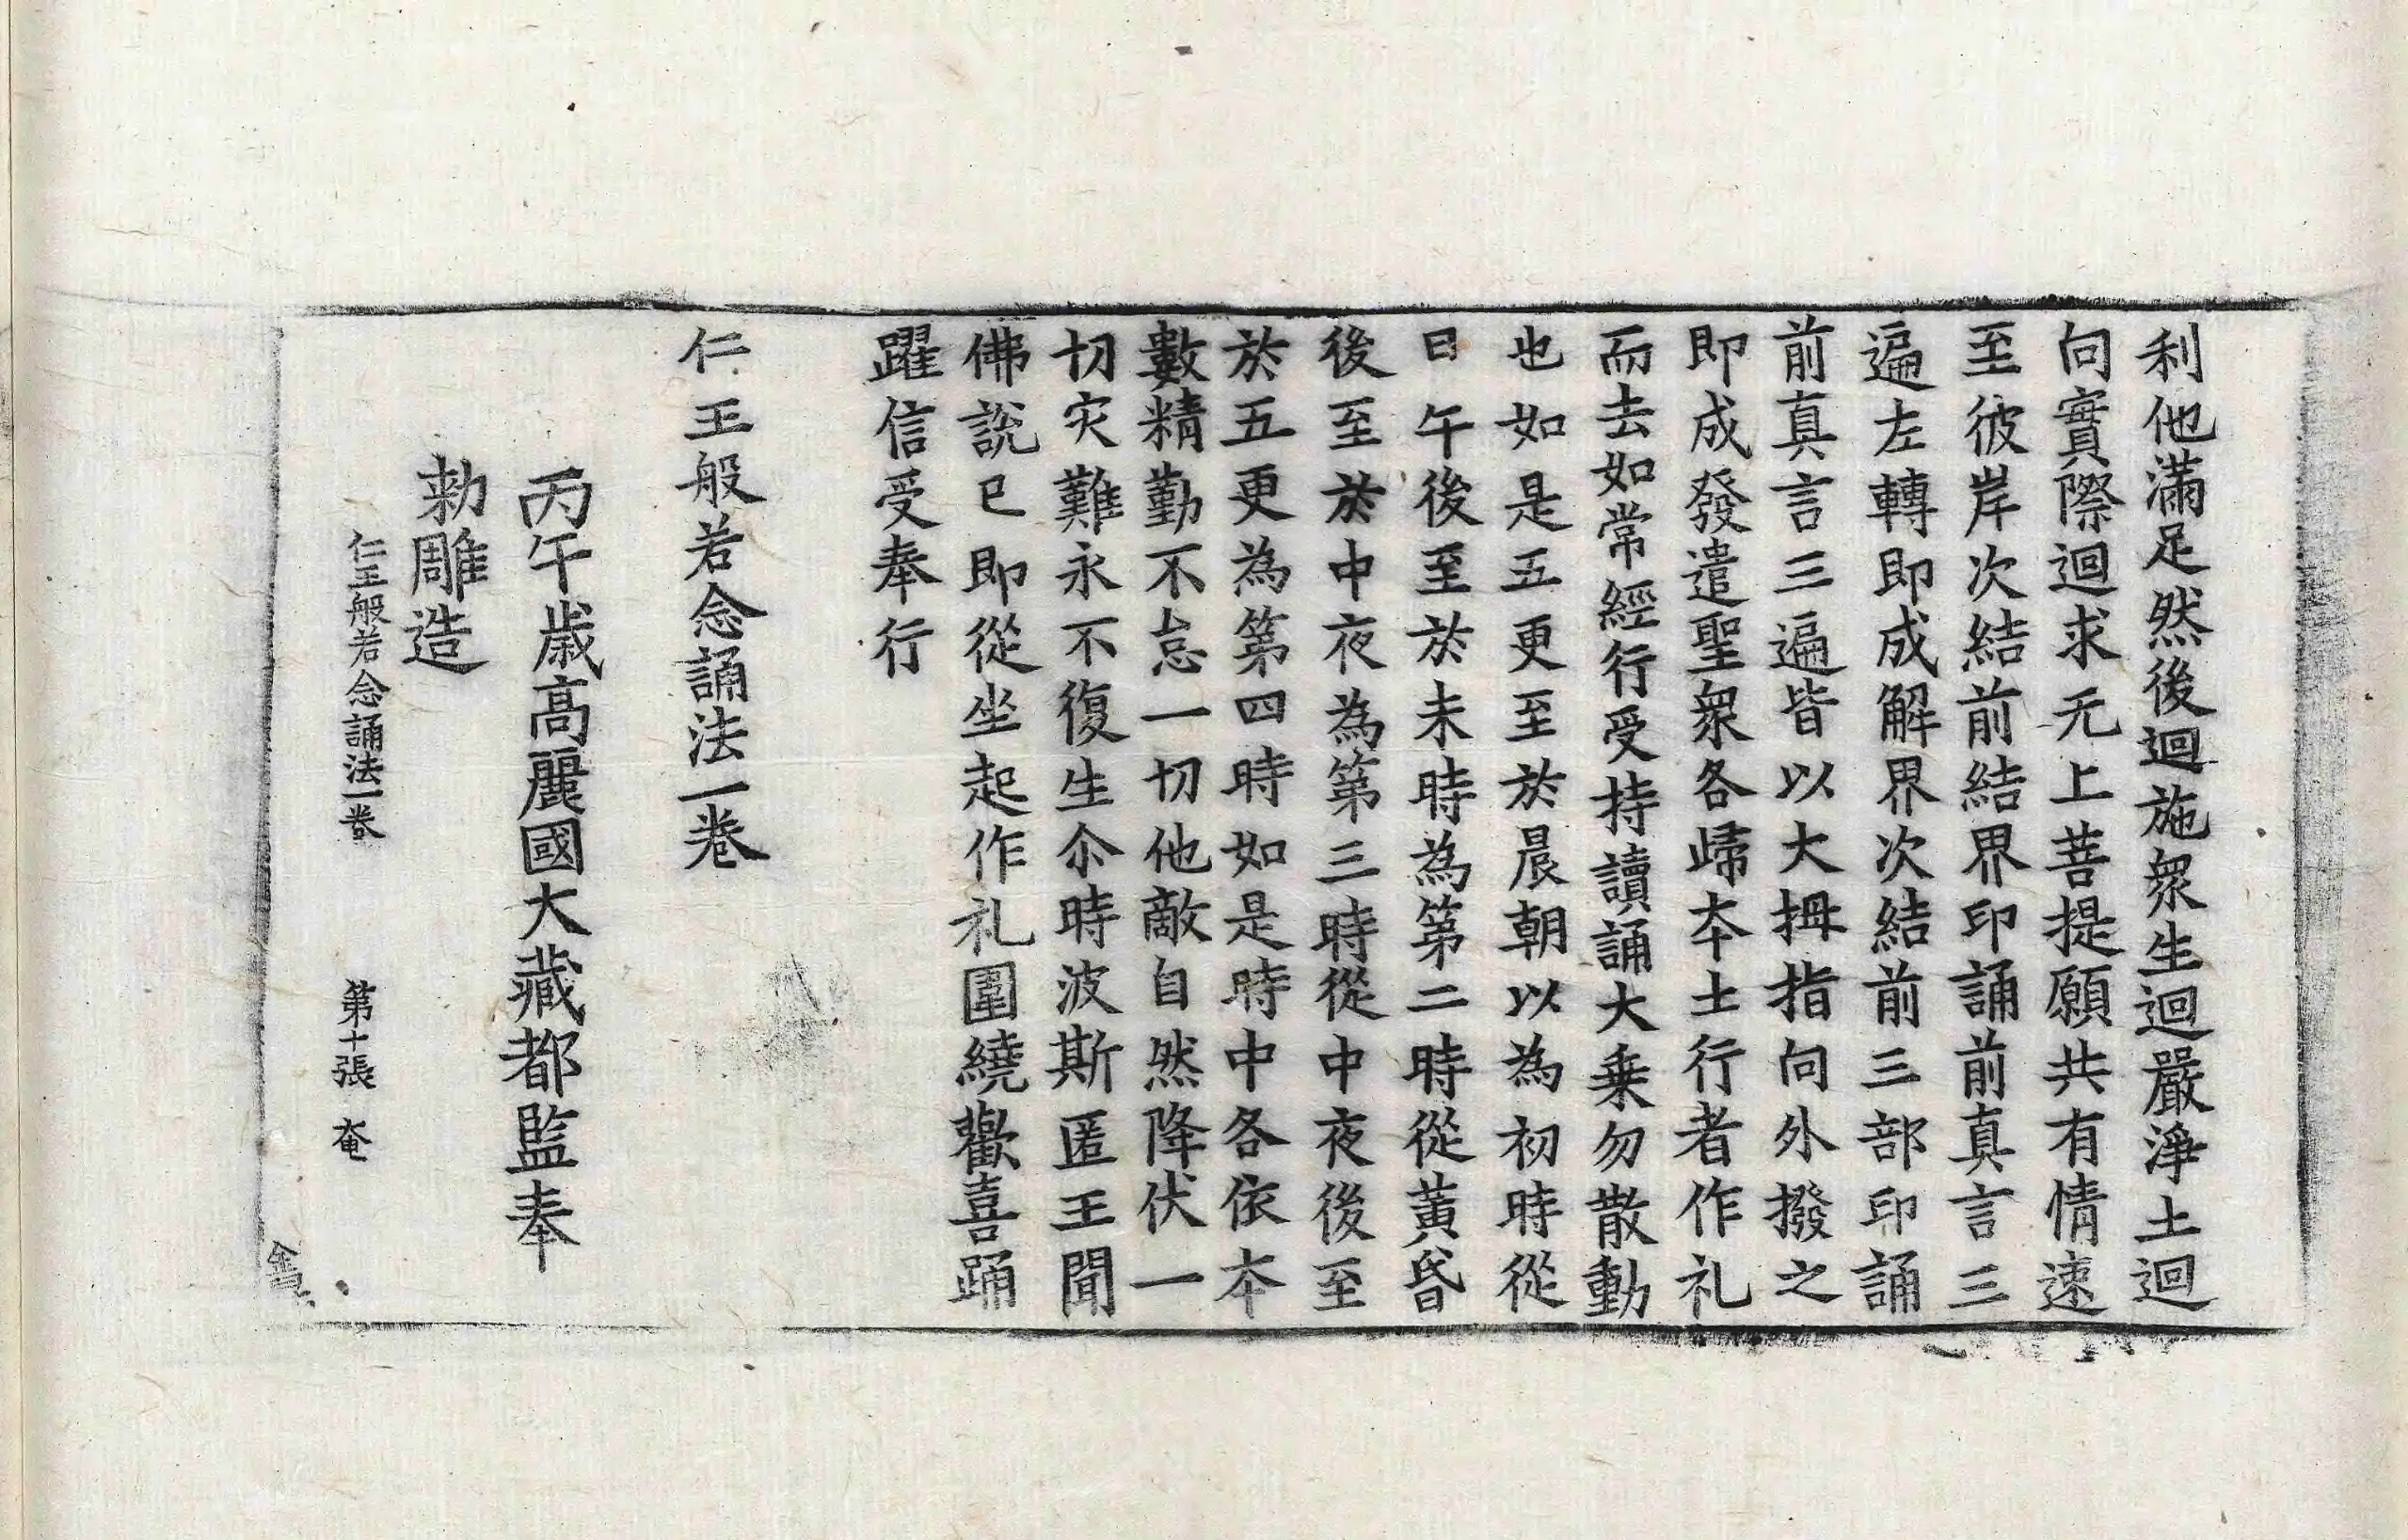 利他滿足然後迴施衆生迴嚴淨土迴
向實際迴求无上菩提願共有情速
至彼岸次結前結界印誦前真言三
遍左轉即成解界次結前三部印誦
前真言三遍皆以大拇指向外撥之
即成發遣聖衆各歸本土行者作礼
而去如常經行受持讀誦大乗勿散動
也如是五更至於晨朝以為初時從
日午後至於未時為第二時從黃昏
後至於中夜為第三時從中夜後至
於五更為第四時如是時中各依本
數精勤不怠一切他敵自然降伏一
切灾難永不復生尒時波斯匿王聞
佛說已即從坐起作礼圍繞歡喜踊
躍信受奉行
仁王般若念誦法一卷
丙午歲高麗國大藏都監奉
勑雕造
仁王般若念誦法一卷 第十張 奄